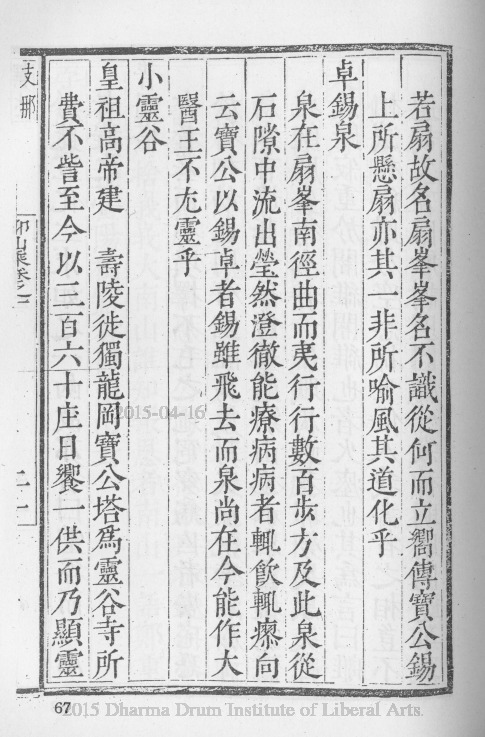 若扇故名扇峯峯名不識從何而立嚮傳寶公錫
上所懸扇亦其一非所喻風其道化乎
卓錫泉
泉在扇峯南徑曲而夷行行數百步方及此泉從
石隙中流出瑩然澄徹能療病病者輒飲輒瘳向
云寶公以錫卓者錫雖飛去而泉尚在今能作大
醫王不尤靈乎
小靈谷
皇祖高帝建 壽陵徙獨龍岡寶公塔爲靈谷寺所
費不訾至今以三百六十庄日饗一供而乃顯靈
支那
2015-04-16
67
2015 Dharma Drum Institute of Liberal Arts.